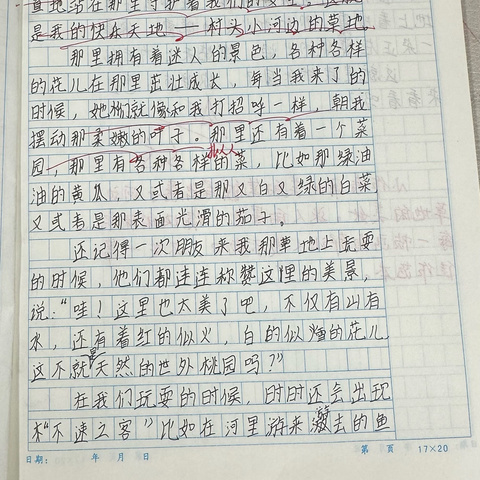 直地站在那里守护着我们的
是我的快乐天地——村头小河边的草地。
那里拥有着迷人的景色,各种各样
的花儿在那里茁壮成长,每当我来了的
时候,她们就像和我打招呼一样,朝我
摆动那柔嫩的叶子。那里还有着一个菜
园,那里有各种各样的菜,比如那绿油
油的黄瓜,又或者是那又白又绿的白菜
又或者是那表面光滑的茄子。
还记得一次朋友来我那草地上玩耍
的时候,他们都连连称赞这里的美景,
说:“哇!这里也太美了吧,不仅有山有
水,还有着红的似火,白的似 的花儿
这不就是天然的世外桃园吗?”
在我们玩耍的时候,时时还会出现
“不速之客”比如在河里游来游去的鱼
日期: 年 月 日 第 页 17×20